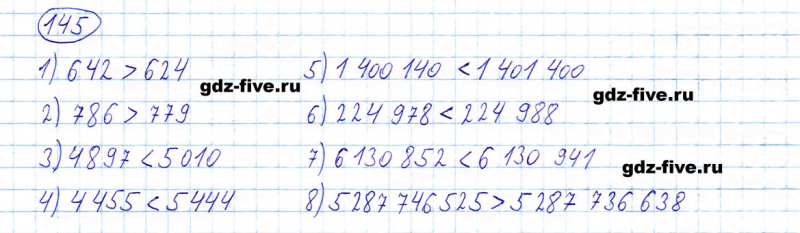 145
1) 642 > 624
2) 786 > 779
3) 4897 < 5010
4) 4 455 < 5 444
5) 1 400 140 < 1 401 400
6) 224 978 < 224 988
7) 6 130 852 < 6 130 941
8) 5 287 746 525 > 5 287 736 638
gdz-five.ru
gdz-five.ru
gdz-five.ru